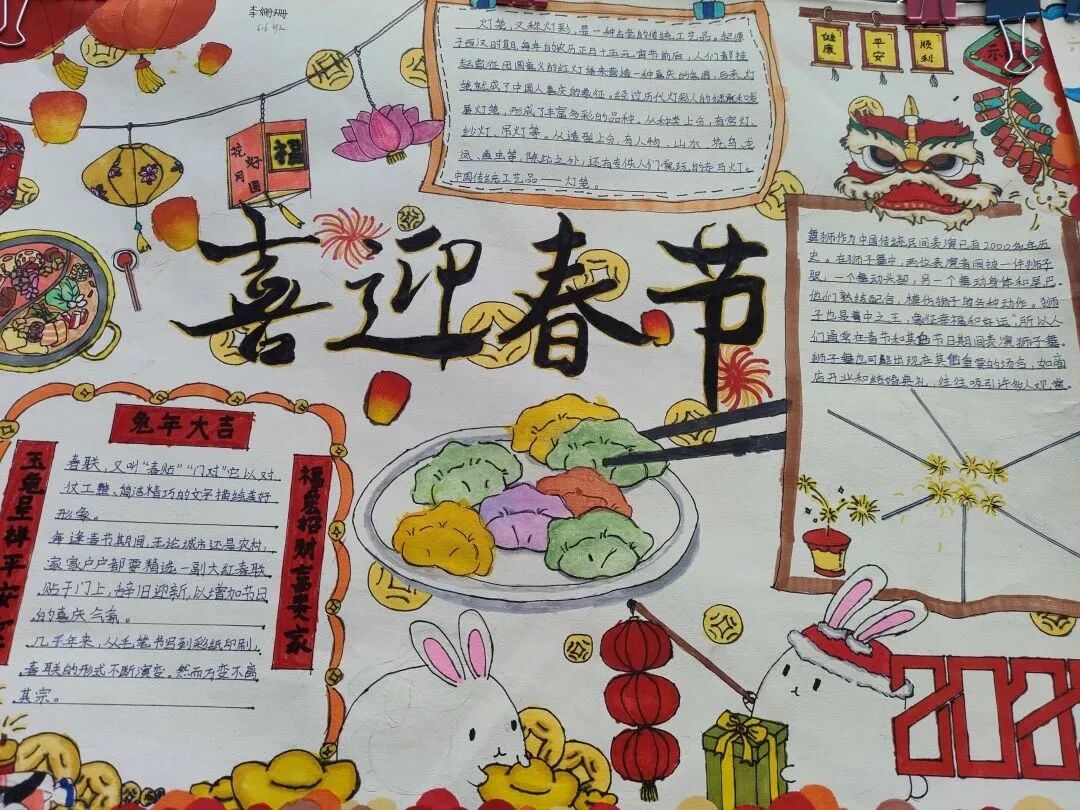 李姗珊
灯笼，又称灯彩，是一种古老的传统工艺品。起源
于西汉时期，每年的农历正月十五元宵节前后，人们都挂
起象征团圆意义的红灯笼来营造一种喜庆的氛围，后来灯
笼就成了中国人喜庆的象征。经过历代灯彩人的继承和发
展灯笼，形成了丰富多彩的品种，从种类上分，有宫灯、
纱灯、吊灯等。从造型上分，有人物、山水、花鸟、龙
凤、鱼虫等，除此之外，还有专供人们赏玩的走马灯。
中国传统工艺品——灯笼。
健康
平安
顺利
花好月圆
福
喜迎春节
舞狮作为中国传统民间表演已有2000多年历
史。在狮子舞中，两位表演者同披一件狮子
服，一个舞动头部，另一个舞动身体和尾巴。
他们熟练配合，模仿狮子的各种动作。狮
子也是兽中之王，象征幸福和好运，所以人
们通常在春节和其他节日期间表演狮子舞。
狮子舞也可能出现在其他重要的场合，如商
店开业和结婚典礼，往往吸引许多人观赏。
兔年大吉
玉兔呈祥平安
福兔招财喜来家
春联，又叫“春贴”“门对”它以对
仗工整、简洁精巧的文字描绘美好
形象。
每逢春节期间，无论城市还是农村，
家家户户都要精选一副大红春联
贴于门上，辞旧迎新，以增加节日
的喜庆气氛。
几千年来，从手笔书写到彩纸印刷，
春联的形式不断演变。然而万变不离
其宗。
202